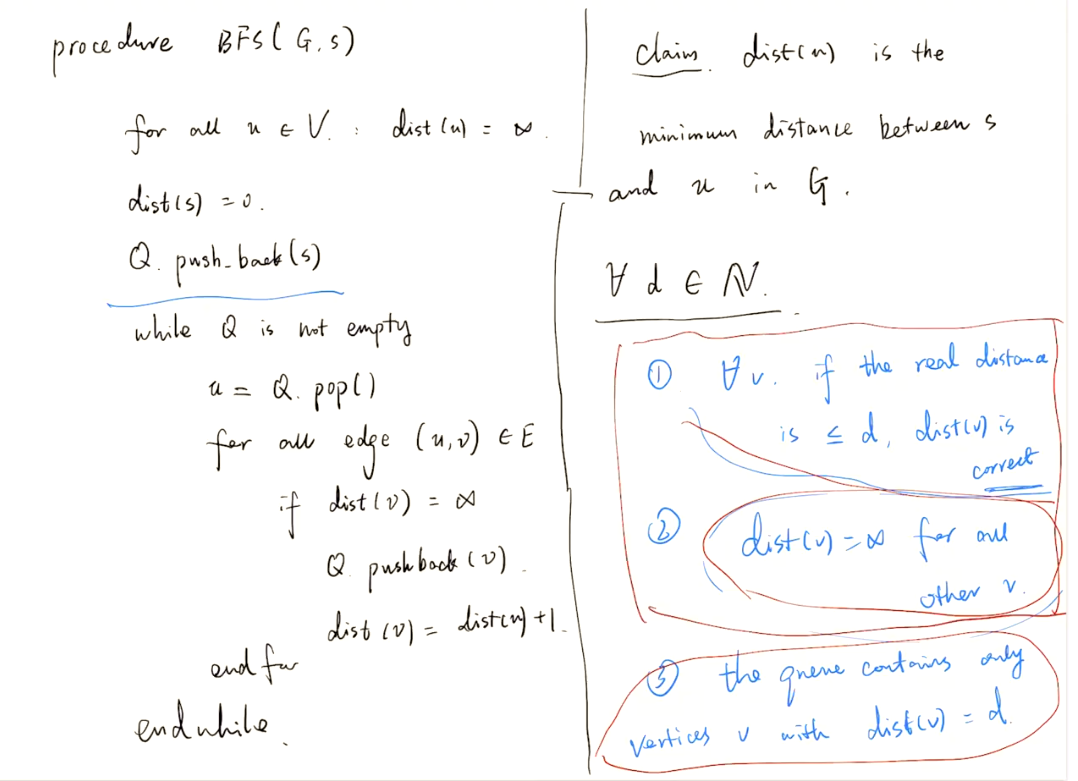 procedure BFS(G,s)
for all u ∈ V : dist(u) = ∞.
dist(s) = 0.
Q. push_back(s)
while Q is not empty
u = Q. pop()
for all edge (u,v) ∈ E
if dist(v) = ∞
Q. pushback(v).
dist(v) = dist(u)+1.
end for
end while.
Claim. dist(u) is the
minimum distance between s
and u in G.
∀ d ∈ N.
① ∀ v. if the real distance
is ≤ d, dist(v) is
correct
② dist(v) = ∞ for all
other v.
③ the queue contains only
vertices v with dist(v) = d.